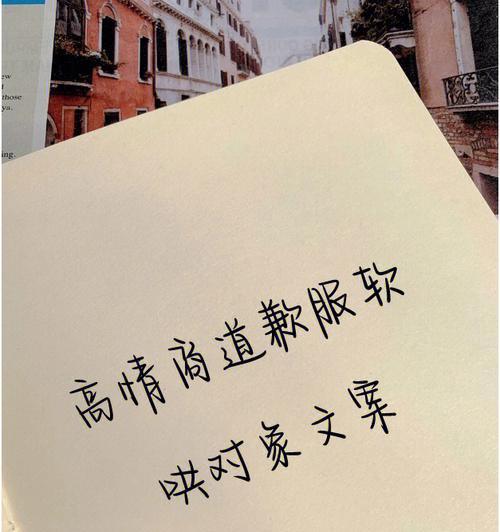 ew
those
ya.
ing.
高情商道歉服软
哄对象文案